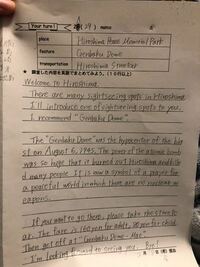 Your turn!
name
place
Hiroshima Peace Memorial Park
feature
Genbaku Dome
transportation
Hiroshima Streetcar
調査した内容を英語でまとめてみよう。(10行以上)
Welcome to Hiroshima.
There are many sightseeing spots in Hiroshima.
I'll introduce one of sightseeing spots to you.
I recommend "Genbaku Dome".
The "Genbaku Dome" was the hypocenter of the
on August 6, 1945. The power of the atomic bomb
was so huge that it burned out Hiroshima and
many people. It is now a symbol of a prayer for
a peaceful world in which there are no nuclear w
eapons.
If you want to go there, please take the streetc
ar. The fare is 160 yen for adult, 80 yen for child.
Then get off at "Genbaku Dome Mae"
I'm looking forward to seeing you. Bye!